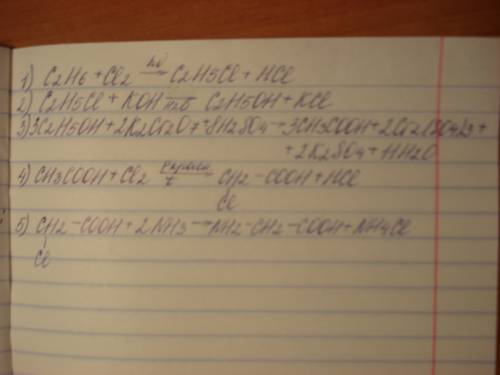 1) C2H6 + Cl2 hν→ C2H5Cl + HCl
2) C2H5Cl + KOH H2O→ C2H5OH + KCl
3) 3C2H5OH + 2K2Cr2O7 + 8H2SO4 → 3CH3COOH + 2Cr2(SO4)3 +
+ 2K2SO4 + 11H2O
4) CH3COOH + Cl2 t→ CH2 - COOH + HCl
Cl
5) CH2 - COOH + 2NH3 → NH2 - CH2 - COOH + NH4Cl
Cl